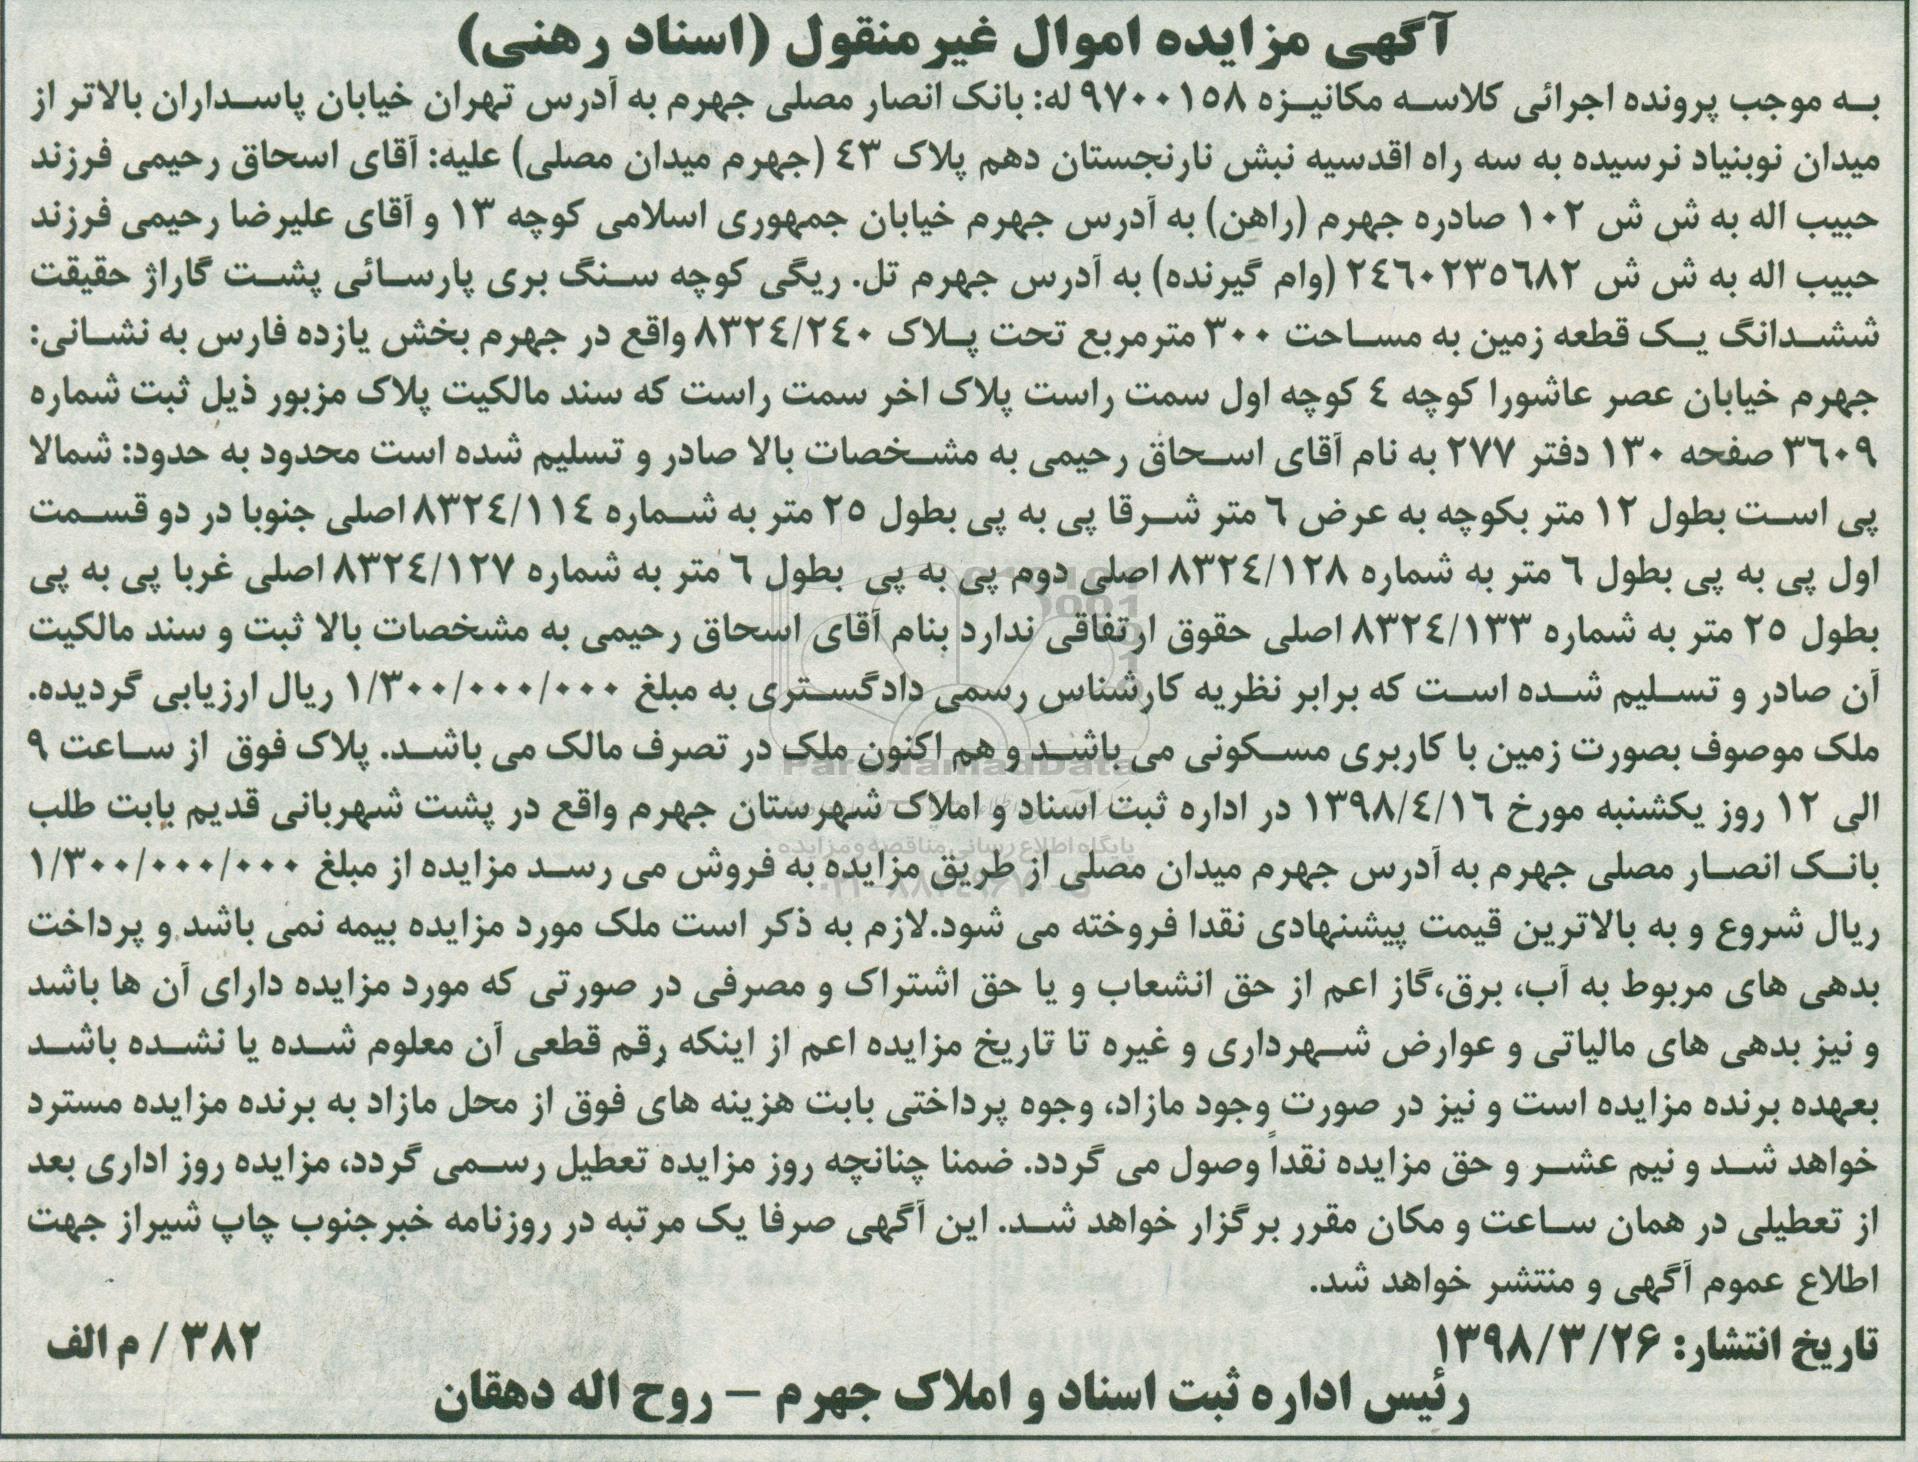 آگهی مزایده اموال غیرمنقول (اسناد رهنی)
به موجب پرونده اجرائی کلاسه مکانیزه ۹۷۰۰۱۵۸ له: بانک انصار مصلی جهرم به آدرس تهران خیابان پاسداران بالاتر از
میدان نوبنیاد نرسیده به سه راه اقدسیه نبش نارنجستان دهم پلاک ۴۳ (جهرم میدان مصلی) علیه: آقای اسحاق رحیمی فرزند
حبیب اله به ش ش ۱۰۲ صادره جهرم (راهن) به آدرس جهرم خیابان جمهوری اسلامی کوچه ۱۳ و آقای علیرضا رحیمی فرزند
حبیب اله به ش ش ۲۴۶۰۲۳۵۶۸۲ (وام گیرنده) به آدرس جهرم تل. ریگی کوچه سنگ بری پارسائی پشت گاراژ حقیقت
ششدانگ یک قطعه زمین به مساحت ۳۰۰ مترمربع تحت پلاک ۸۳۲۴/۲۴۰ واقع در جهرم بخش یازده فارس به نشانی:
جهرم خیابان عصر عاشورا کوچه ۴ کوچه اول سمت راست پلاک اخر سمت راست که سند مالکیت پلاک مزبور ذیل ثبت شماره
۳۶۰۹ صفحه ۱۳۰ دفتر ۲۷۷ به نام آقای اسحاق رحیمی به مشخصات بالا صادر و تسلیم شده است محدود به حدود: شمالا
پی است بطول ۱۲ متر بکوچه به عرض ۶ متر شرقا پی به پی بطول ۲۵ متر به شماره ۸۳۲۴/۱۱۴ اصلی جنوبا در دو قسمت
اول پی به پی بطول ۶ متر به شماره ۸۳۲۴/۱۲۸ اصلی دوم پی به پی بطول ۶ متر به شماره ۸۳۲۴/۱۲۷ اصلی غربا پی به پی
بطول ۲۵ متر به شماره ۸۳۲۴/۱۳۳ اصلی حقوق ارتفاقی ندارد بنام آقای اسحاق رحیمی به مشخصات بالا ثبت و سند مالکیت
آن صادر و تسلیم شده است که برابر نظریه کارشناس رسمی دادگستری به مبلغ ۱/۳۰۰/۰۰۰/۰۰۰ ریال ارزیابی گردیده.
ملک موصوف بصورت زمین با کاربری مسکونی می باشد و هم اکنون ملک در تصرف مالک می باشد. پلاک فوق از ساعت ۹
الی ۱۲ روز یکشنبه مورخ ۱۳۹۸/۴/۱۶ در اداره ثبت اسناد و املاک شهرستان جهرم واقع در پشت شهربانی قدیم بابت طلب
بانک انصار مصلی جهرم به آدرس جهرم میدان مصلی از طریق مزایده به فروش می رسد مزایده از مبلغ ۱/۳۰۰/۰۰۰/۰۰۰
ریال شروع و به بالاترین قیمت پیشنهادی نقدا فروخته می شود.لازم به ذکر است ملک مورد مزایده بیمه نمی باشد و پرداخت
بدهی های مربوط به آب، برق،گاز اعم از حق انشعاب و یا حق اشتراک و مصرفی در صورتی که مورد مزایده دارای آن ها باشد
و نیز بدهی های مالیاتی و عوارض شهرداری و غیره تا تاریخ مزایده اعم از اینکه رقم قطعی آن معلوم شده یا نشده باشد
بعهده برنده مزایده است و نیز در صورت وجود مازاد، وجوه پرداختی بابت هزینه های فوق از محل مازاد به برنده مزایده مسترد
خواهد شد و نیم عشر و حق مزایده نقداً وصول می گردد. ضمنا چنانچه روز مزایده تعطیل رسمی گردد، مزایده روز اداری بعد
از تعطیلی در همان ساعت و مکان مقرر برگزار خواهد شد. این آگهی صرفا یک مرتبه در روزنامه خبرجنوب چاپ شیراز جهت
اطلاع عموم آگهی و منتشر خواهد شد.
تاریخ انتشار: ۱۳۹۸/۳/۲۶
۳۸۲ / م الف
رئیس اداره ثبت اسناد و املاک جهرم – روح اله دهقان
ParsNamadData
پایگاه اطلاع رسانی مناقصه و مزایده